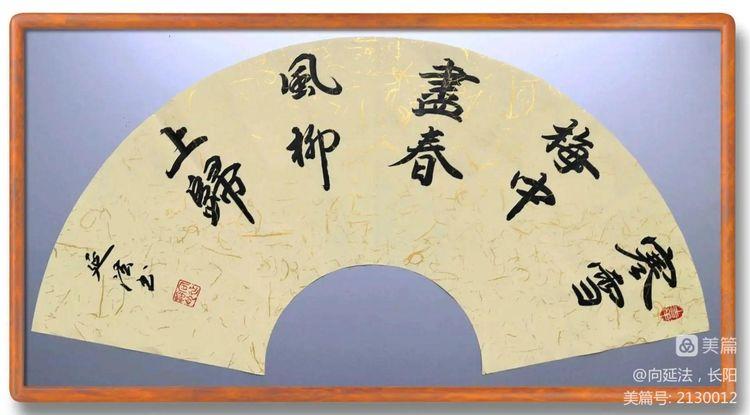 寒雪
梅中
盡春
風柳
上歸
延法书
美篇
@向延法，长阳
美篇号: 2130012